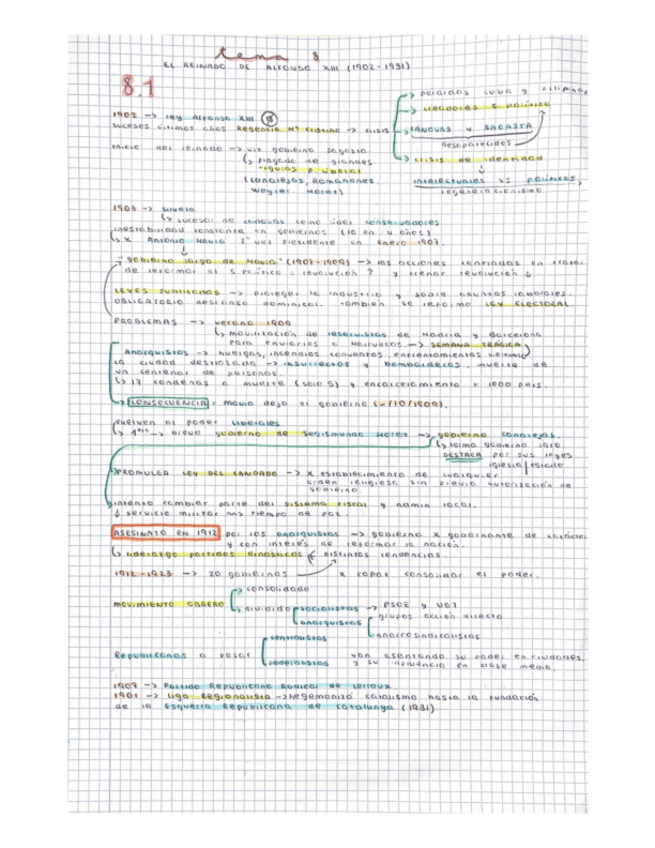 tema 8
EL REINADO DE ALFONSO XIII (1902-1931)
8.1
→ perdidas Cuba y Filipinas
→ creadores s. político
1902 -> rey Alfonso XIII
sucesos últimos años Regencia Mª Cristina -> crisis → CÁNOVAS y SAGASTA
desaparecidos
inicio del reinado -> gobierno Sagasta → crisis de identidad
↳ plagado de grandes
figuras p. liberal
(Canalejas, Romanones, intelectuales y políticos,
Weyler, Moret) regeneracionismo
1903 -> Silvela
↳ sucesor de Cánovas como líder conservadores
inestabilidad constante en gobiernos (10 en 4 años)
↳ x Antonio Maura 2ª vez presidente en enero 1907.
"gobierno largo de Maura" (1907-1909) -> las acciones centradas en tratar
de reformar el s. político : revolución ↑ y frenar revolución ↓
LEYES PUBLICADAS -> proteger la industria y sobre asuntos laborales.
OBLIGATORIO descanso dominical. También se reformó LEY ELECTORAL.
PROBLEMAS -> verano 1909
↳ movilización de reservistas de Madrid y Barcelona
para enviarlos a Marruecos -> SEMANA TRÁGICA
Anarquistas -> huelgas, incendios conventos, enfrentamientos
la ciudad destrozada -> insurrectos y bombarderos, muerte de
un centenar de personas.
↳ 17 condenas a muerte (solo 5) y encarcelamiento + 1800 pers.
→ CONSECUENCIA: Maura dejó el gobierno (-/10/1909).
Vuelven al poder liberales
↳ 1º -> breve gobierno de Segismundo Moret -> gobierno Canalejas.
↳ forma gobierno 1910
DESTACA por sus leyes
iglesia/estado
→ PROMULGA LEY DEL CANDADO -> x establecimiento de cualquier
orden religiosa sin previa autorización de
gobierno.
intento cambiar parte del sistema fiscal y admin local.
↓ servicio militar tiempo de paz.
ASESINATO EN 1912 por los anarquistas -> gobierno x gobernante de carácter
y con interés de reformar la nación.
↳ liderazgo partidos dinásticos distintas tendencias.
1912-1923 -> 20 gobiernos x capaz consolidar el poder.
→ consolidado
MOVIMIENTO OBRERO → dividido socialistas -> PSOE y UGT
anarquistas grupos acción directa
anarcosindicalistas
centralistas
Republicanos a pesar van asentando su poder en ciudades,
federalistas y su influencia en clase media
1907 -> Partido Republicano Radical de Lerroux
1901 -> Liga Regionalista -> hegemonizó catalismo hasta la fundación
de la Esquerra Republicana de Catalunya (1931)